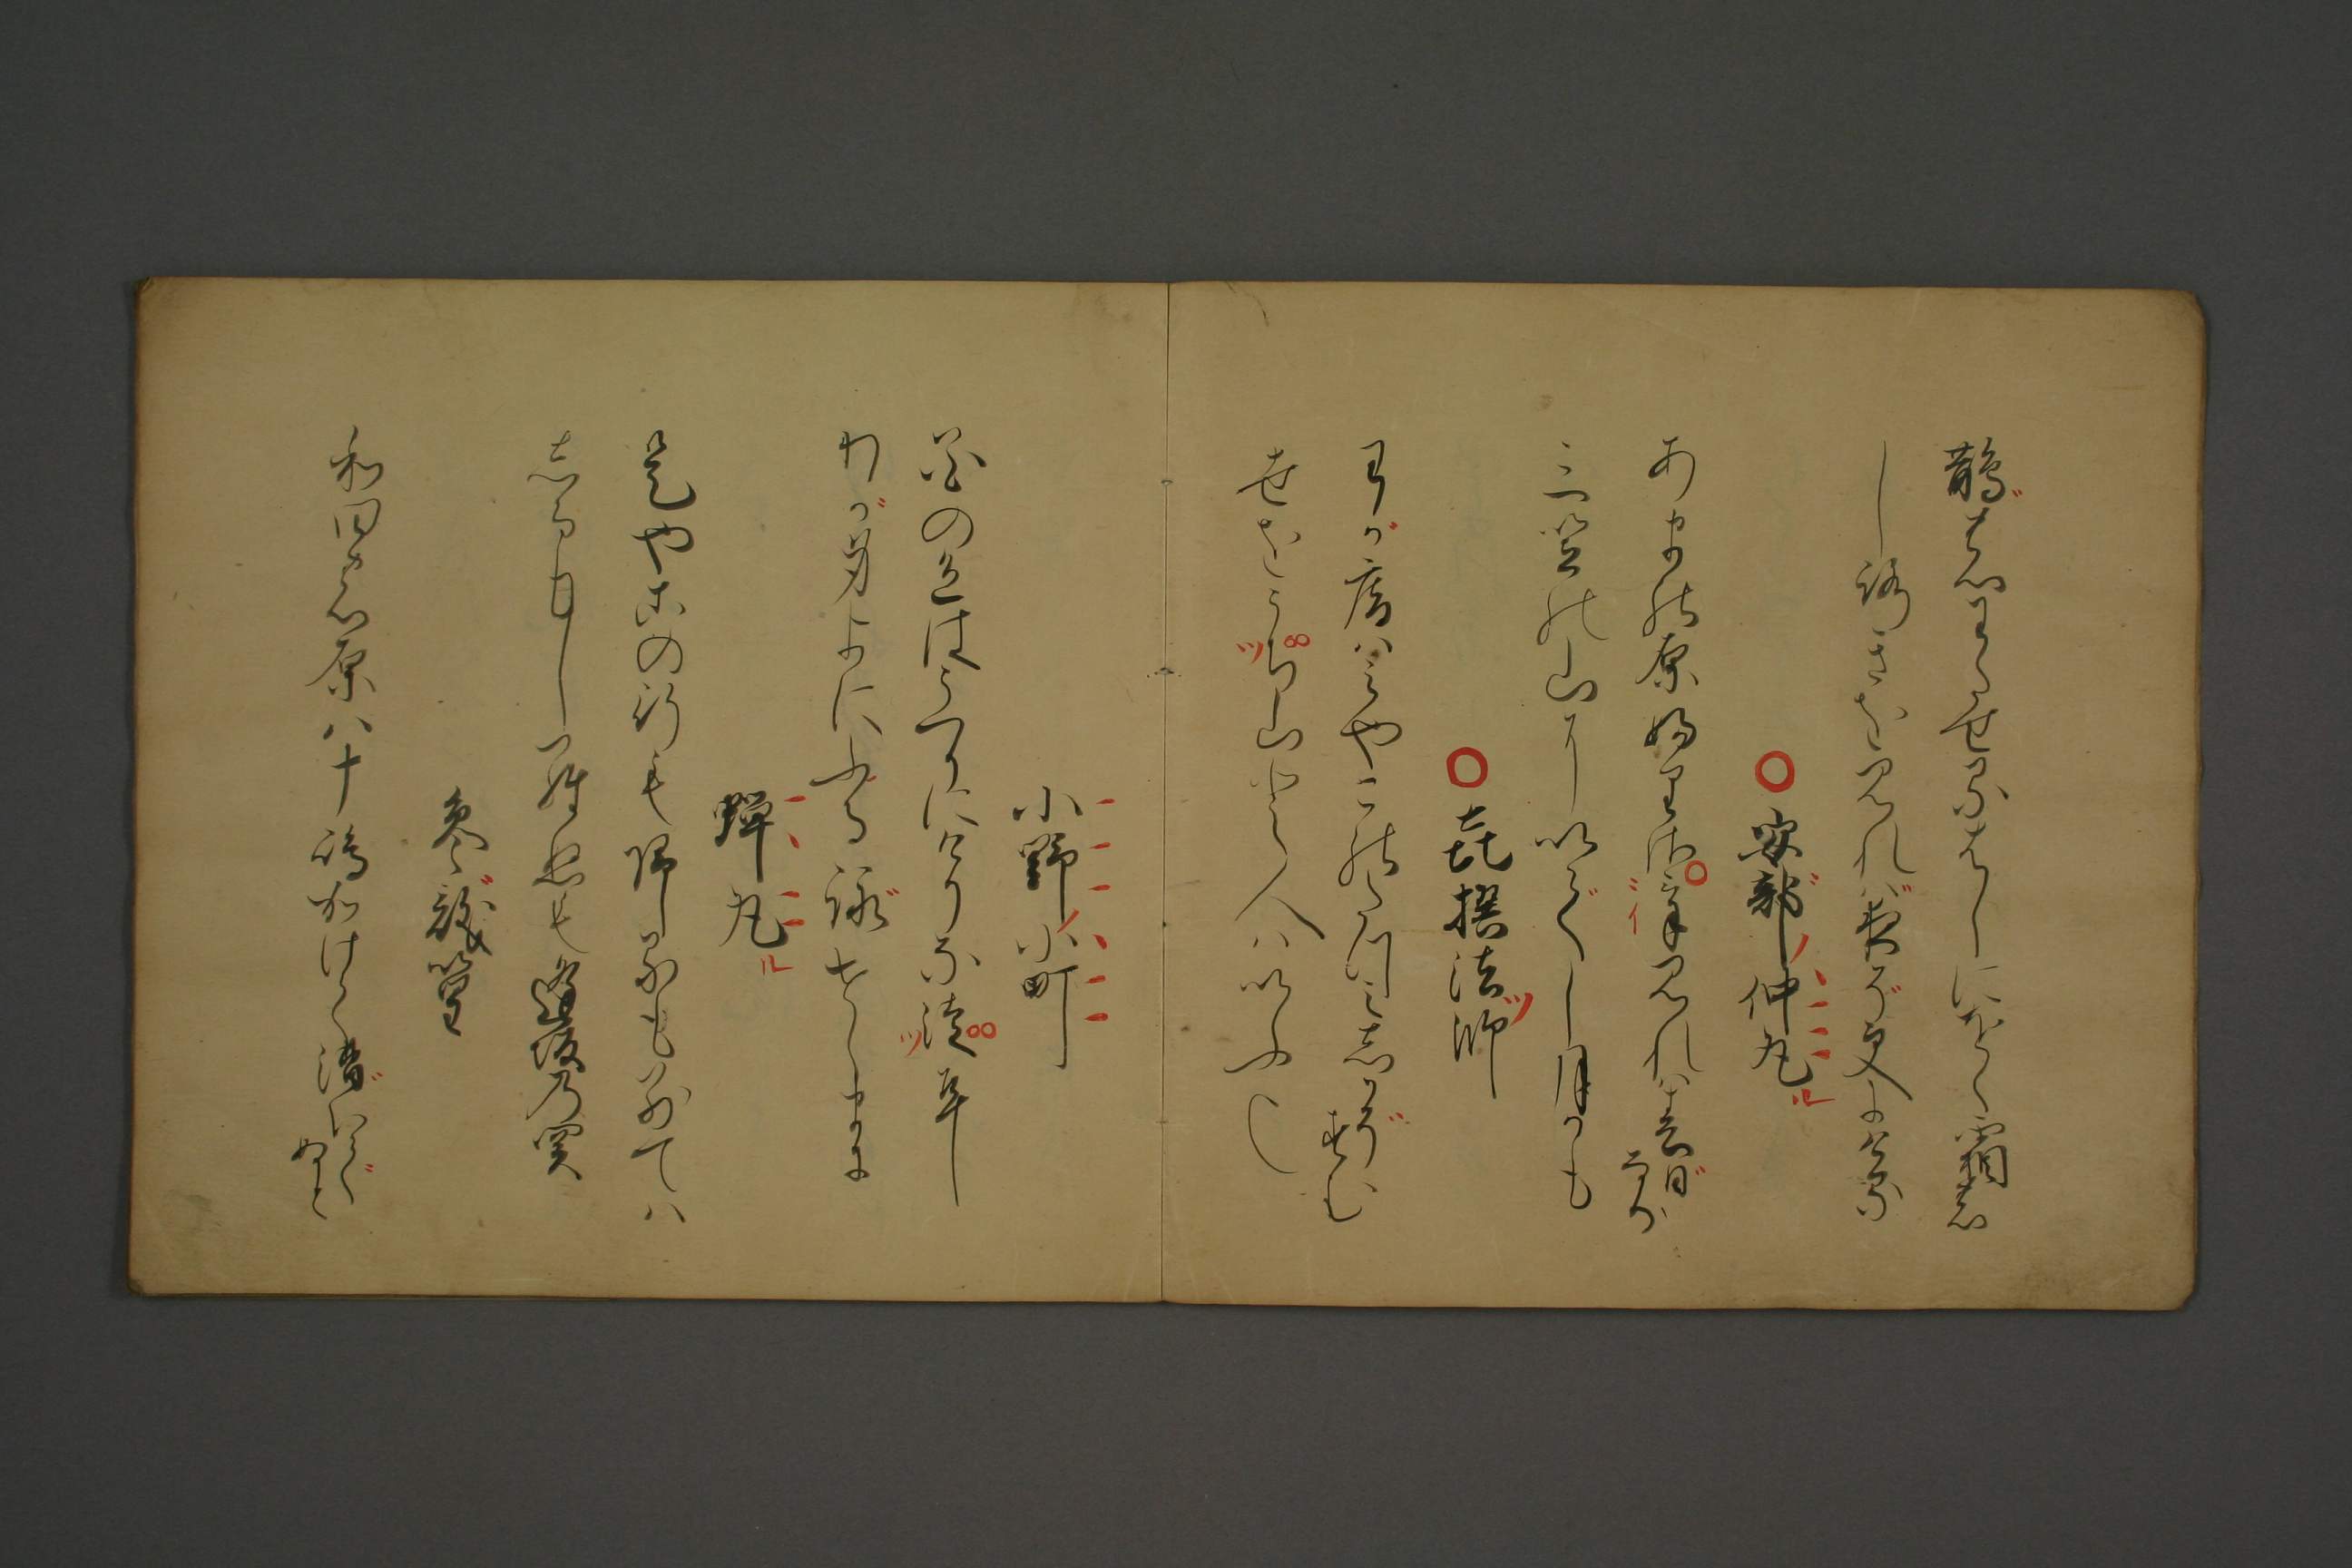 鵲のわたせるはしにをく霜の
しろきを見れば夜ぞ更にける
安部仲丸
あまの原ふりさけ見れば春日なる
三笠の山にいでし月かも
喜撰法師
わが庵はみやこのたつみしかぞすむ
世をうぢ山と人はいふなり
小野小町
花の色はうつりにけりな徒に
わが身よにふる詠せしまに
蝉丸
是やこの行も帰るも別ては
しるもしらぬも逢坂乃関
参議篁
和田の原八十嶋かけて漕いでぬと